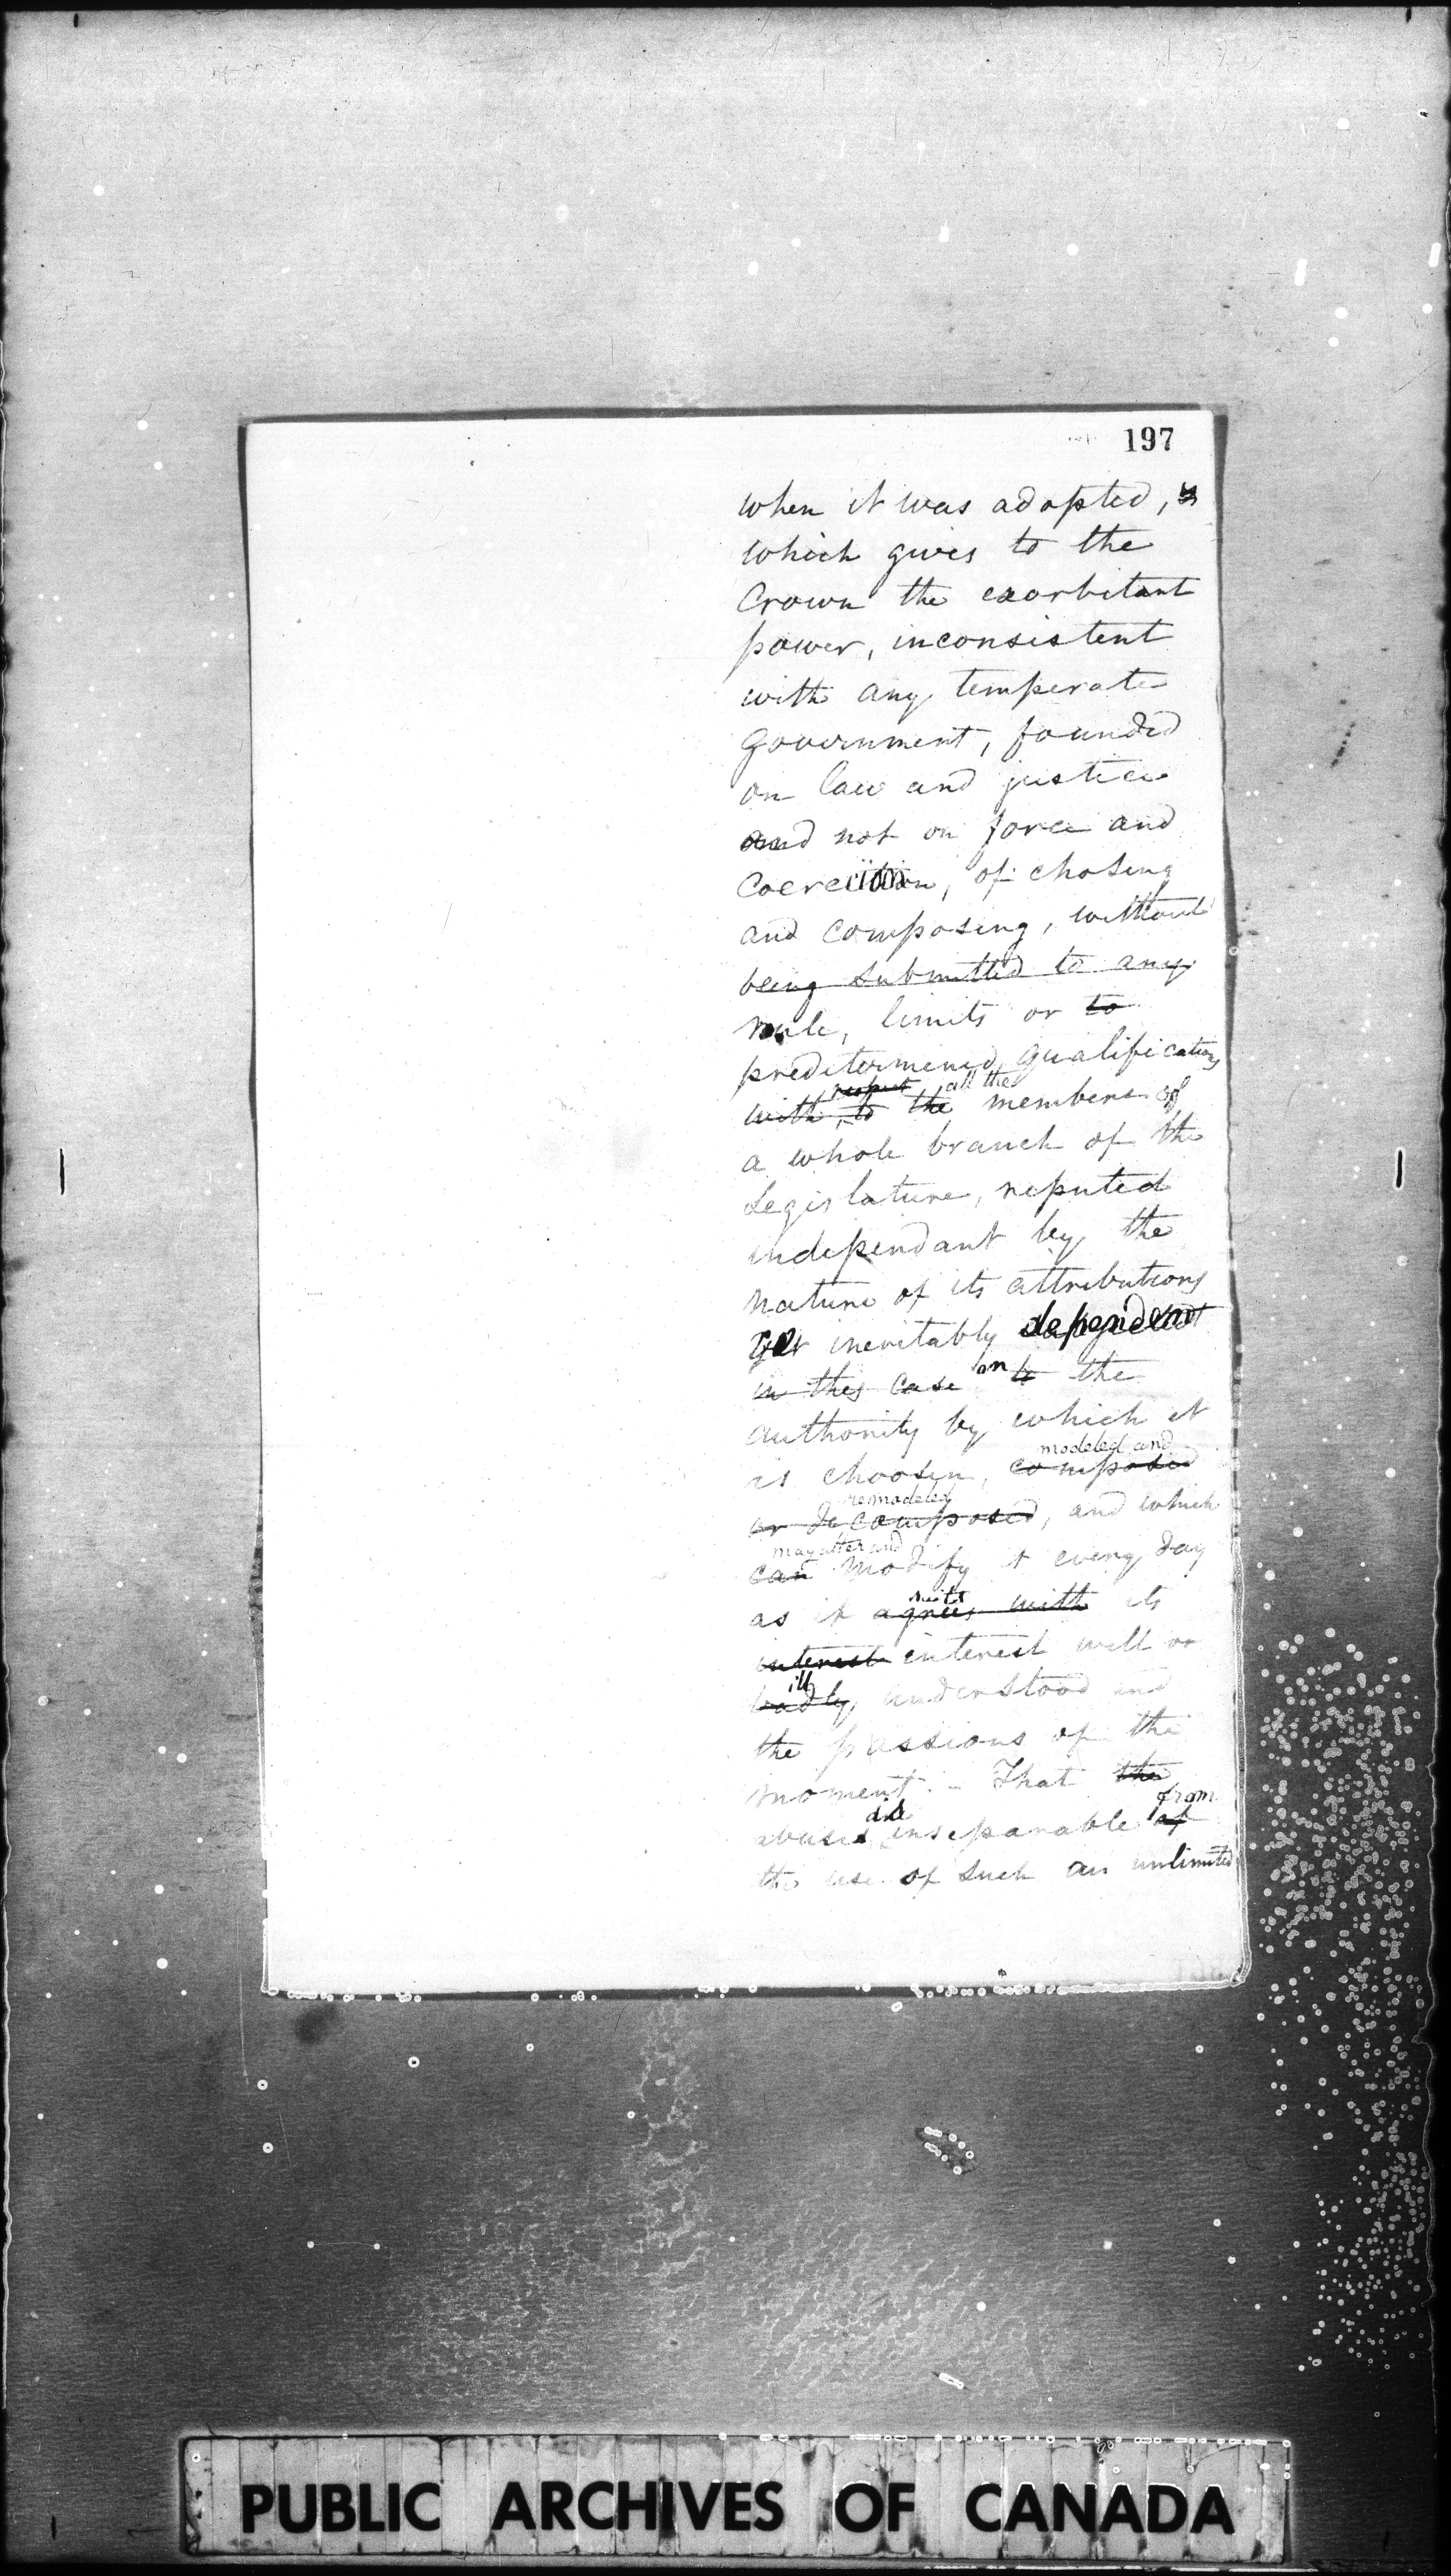 197
when it was adopted, is
which gives to the
Crown the exorbitant
power, inconsistent
with any temperate
government, founded
on law and justice
and not on force and
Coercition, of chosing
and composing, without
being submitted to any
rule, limits or to
predetermined qualifications
respect all the
with, to the members of
a whole branch of the
Legislature, reputed
independant by the
nature of its attributions
yet inevitably dependent
in this case on to the
authority by which it
modeled and
is choosen, composed
remodeled
or decomposed, and which
may alter and
can modify it every day
suits
as it agrees with its
interest interest well or
ill
badly, understood and
the passions of the
moment. - That the
are from
abuses inseparable of
the use of such an unlimited
PUBLIC ARCHIVES OF CANADA